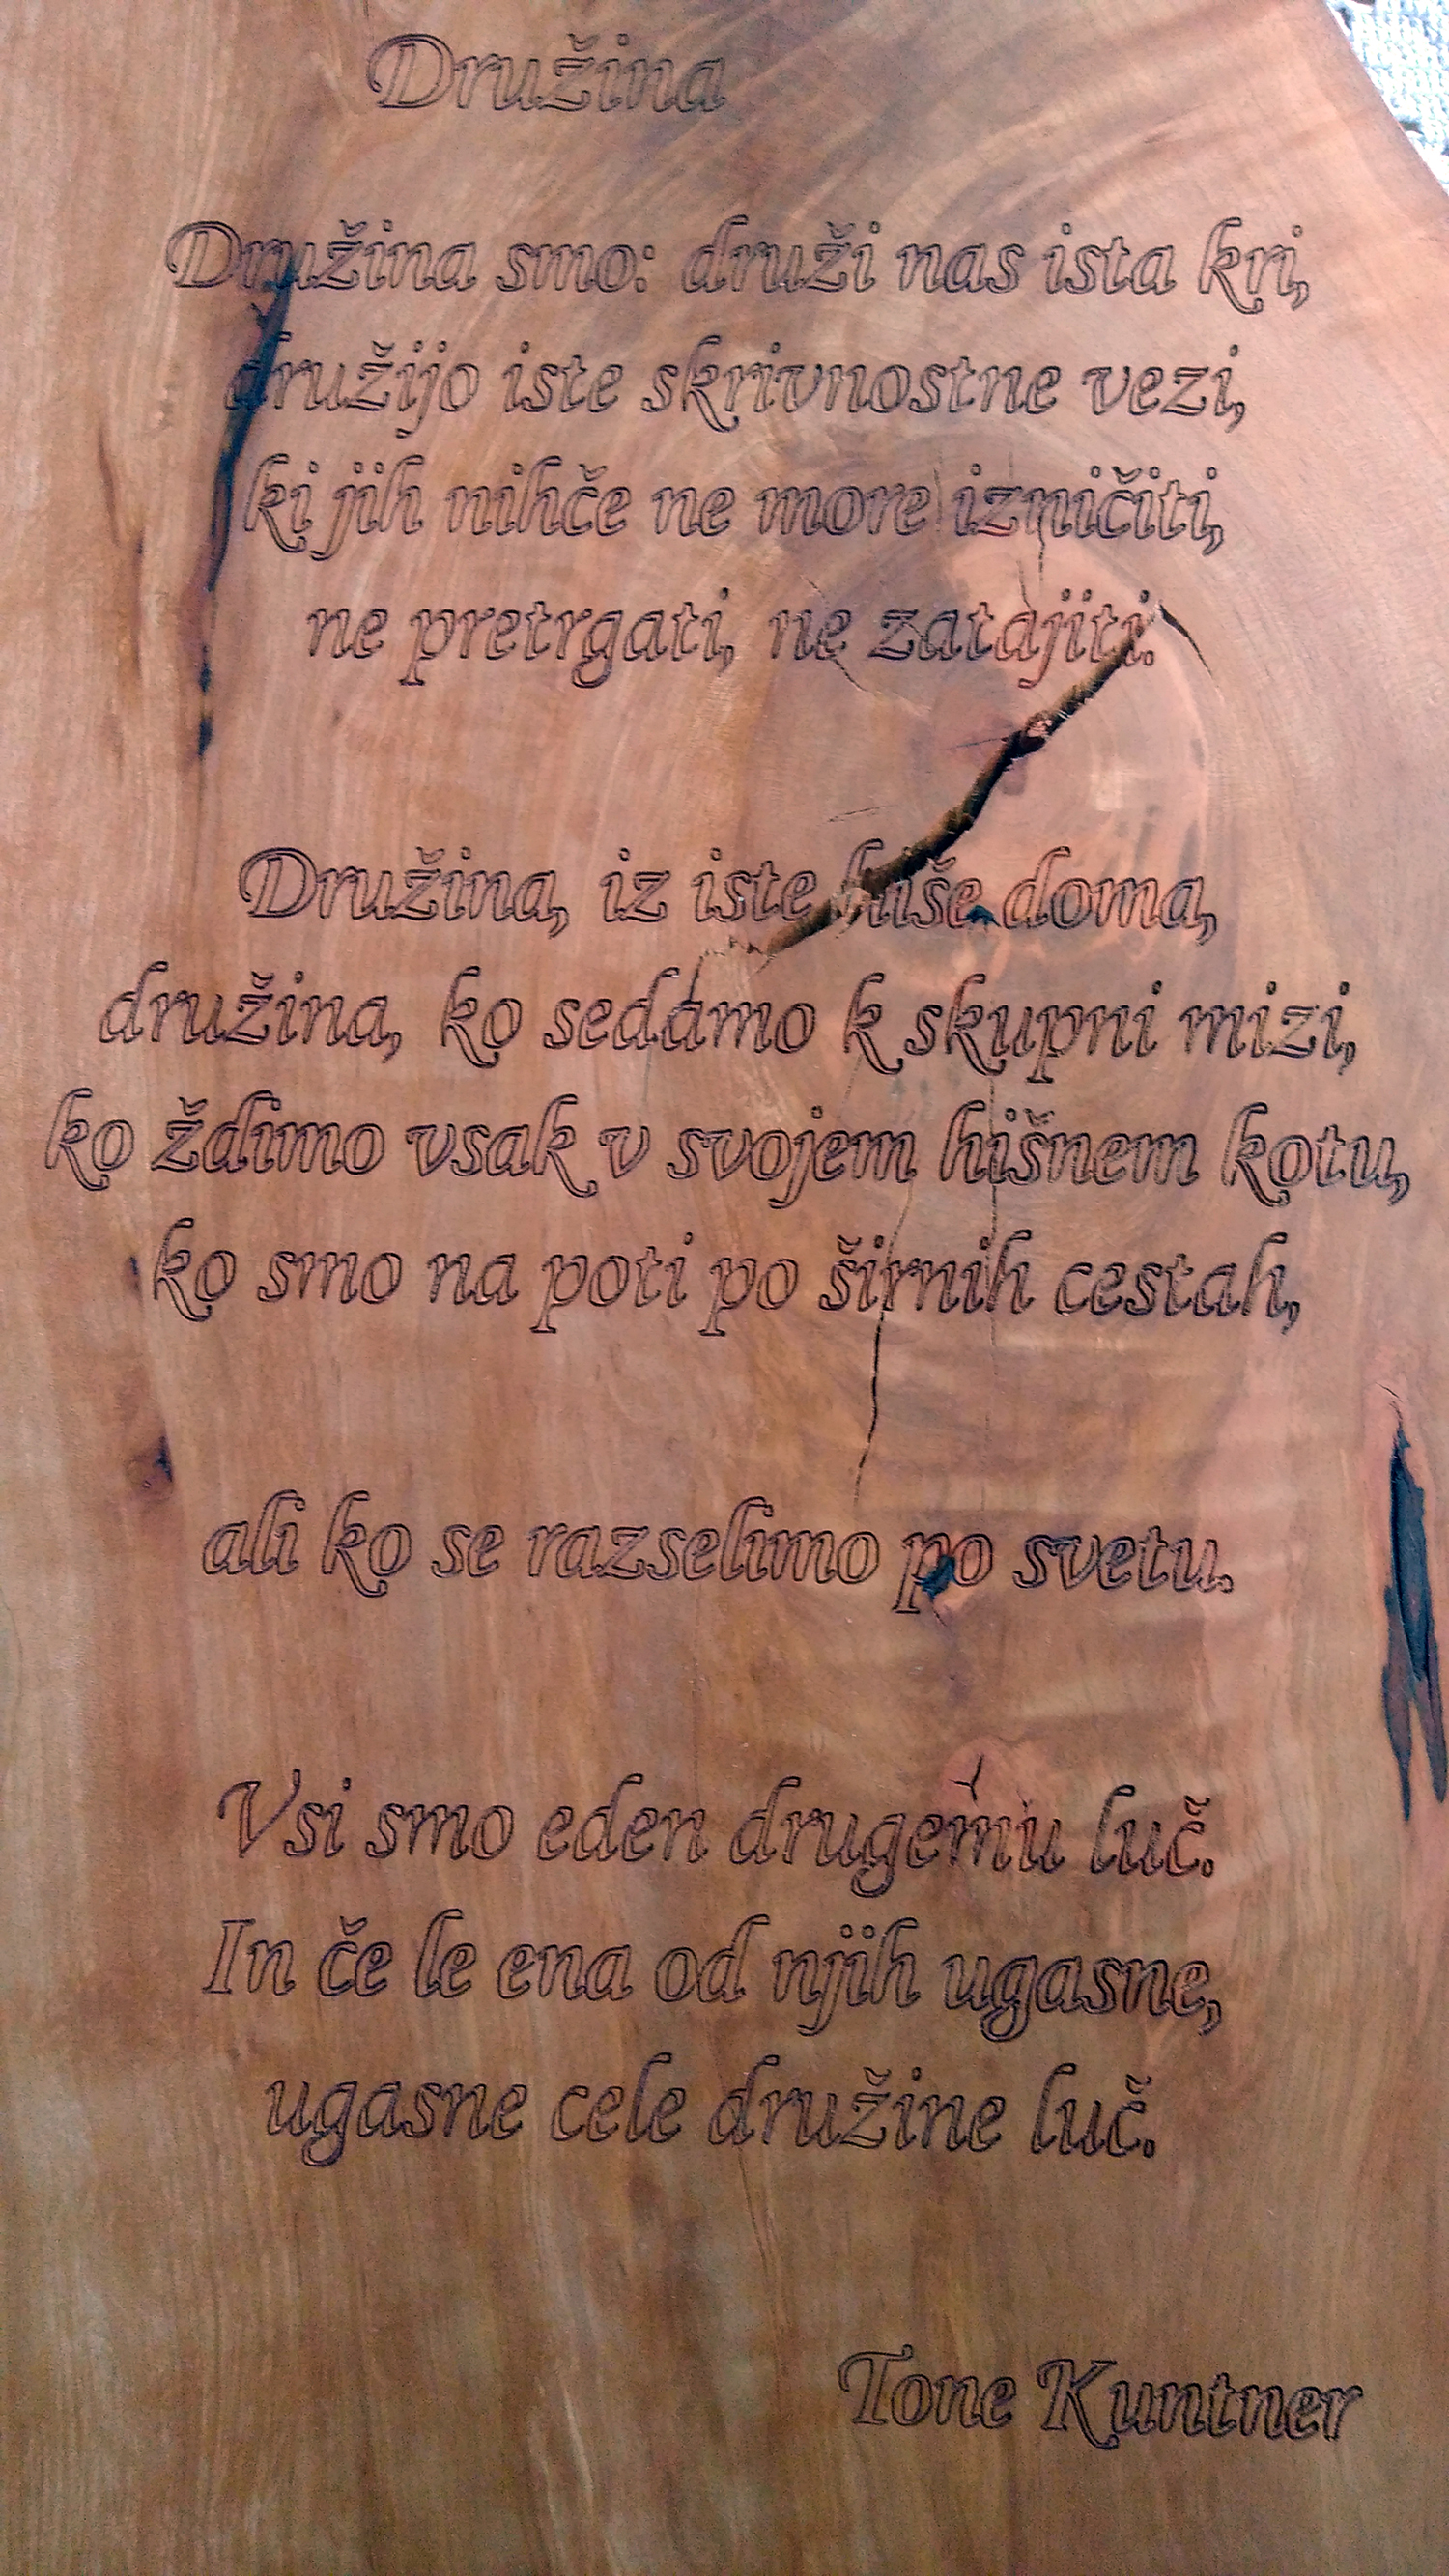 Družina
Družina smo: druži nas ista kri,
družijo iste skrivnostne vezi,
ki jih nihče ne more izničiti,
ne pretrgati, ne zatajiti.
Družina, iz iste hiše doma,
družina, ko sedamo k skupni mizi,
ko ždimo vsak v svojem hišnem kotu,
ko smo na poti po širnih cestah,
ali ko se razselimo po svetu.
Vsi smo eden drugemu luč.
In če le ena od njih ugasne,
ugasne cele družine luč.
Tone Kuntner